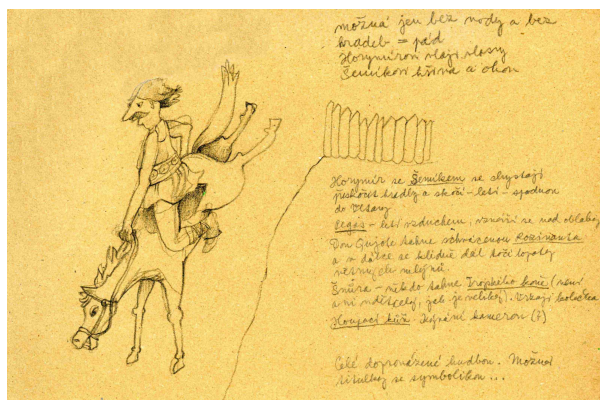 možná jen bez vody a bez
hradeb = pád
Horymírovi vlají vlasy
Šemíkovi hříva a ohon
Horymír se Šemíkem se chystají
přeskočit hradby a skočí - letí - spadnou
do Vltavy
Pegas - letí vzduchem, vznáší se nad oblaky
Don Quijote táhne schvácenou Rozinantu
a v dálce se klidně dál točí lopatky
větrných mlýnů.
Šňůra - někdo táhne Trojského koně (není
ani vidět celý, jak je veliký). Vrzají kolečka
Houpací kůň
Celé doprovázené hudbou. Možná
titulky se symbolikou ...